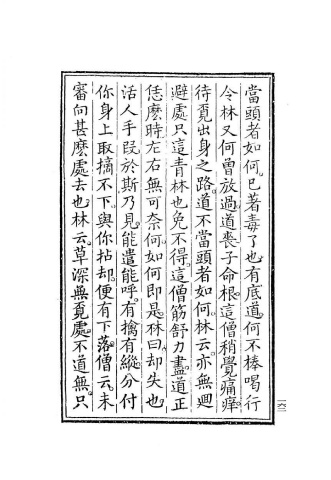 當頭者如何。已著毒了也。有底道。何不棒喝行
令。林又何曾放過。道喪子命根。這僧稍覺痛痒。
待覓出身之路。道不當頭者如何。林云。亦無廻
避處。只這青林也免不得。這僧筋舒力盡。道正
恁麽時。左右無可奈何。如何即是。林曰。却失也。
活人手段。於斯乃見。能遣能呼。有擒有縱。分付
你身上取摘不下。與你拈却。便有下落。僧云。未
審向甚麽處去也。林云。草深無覓處。不道無。只